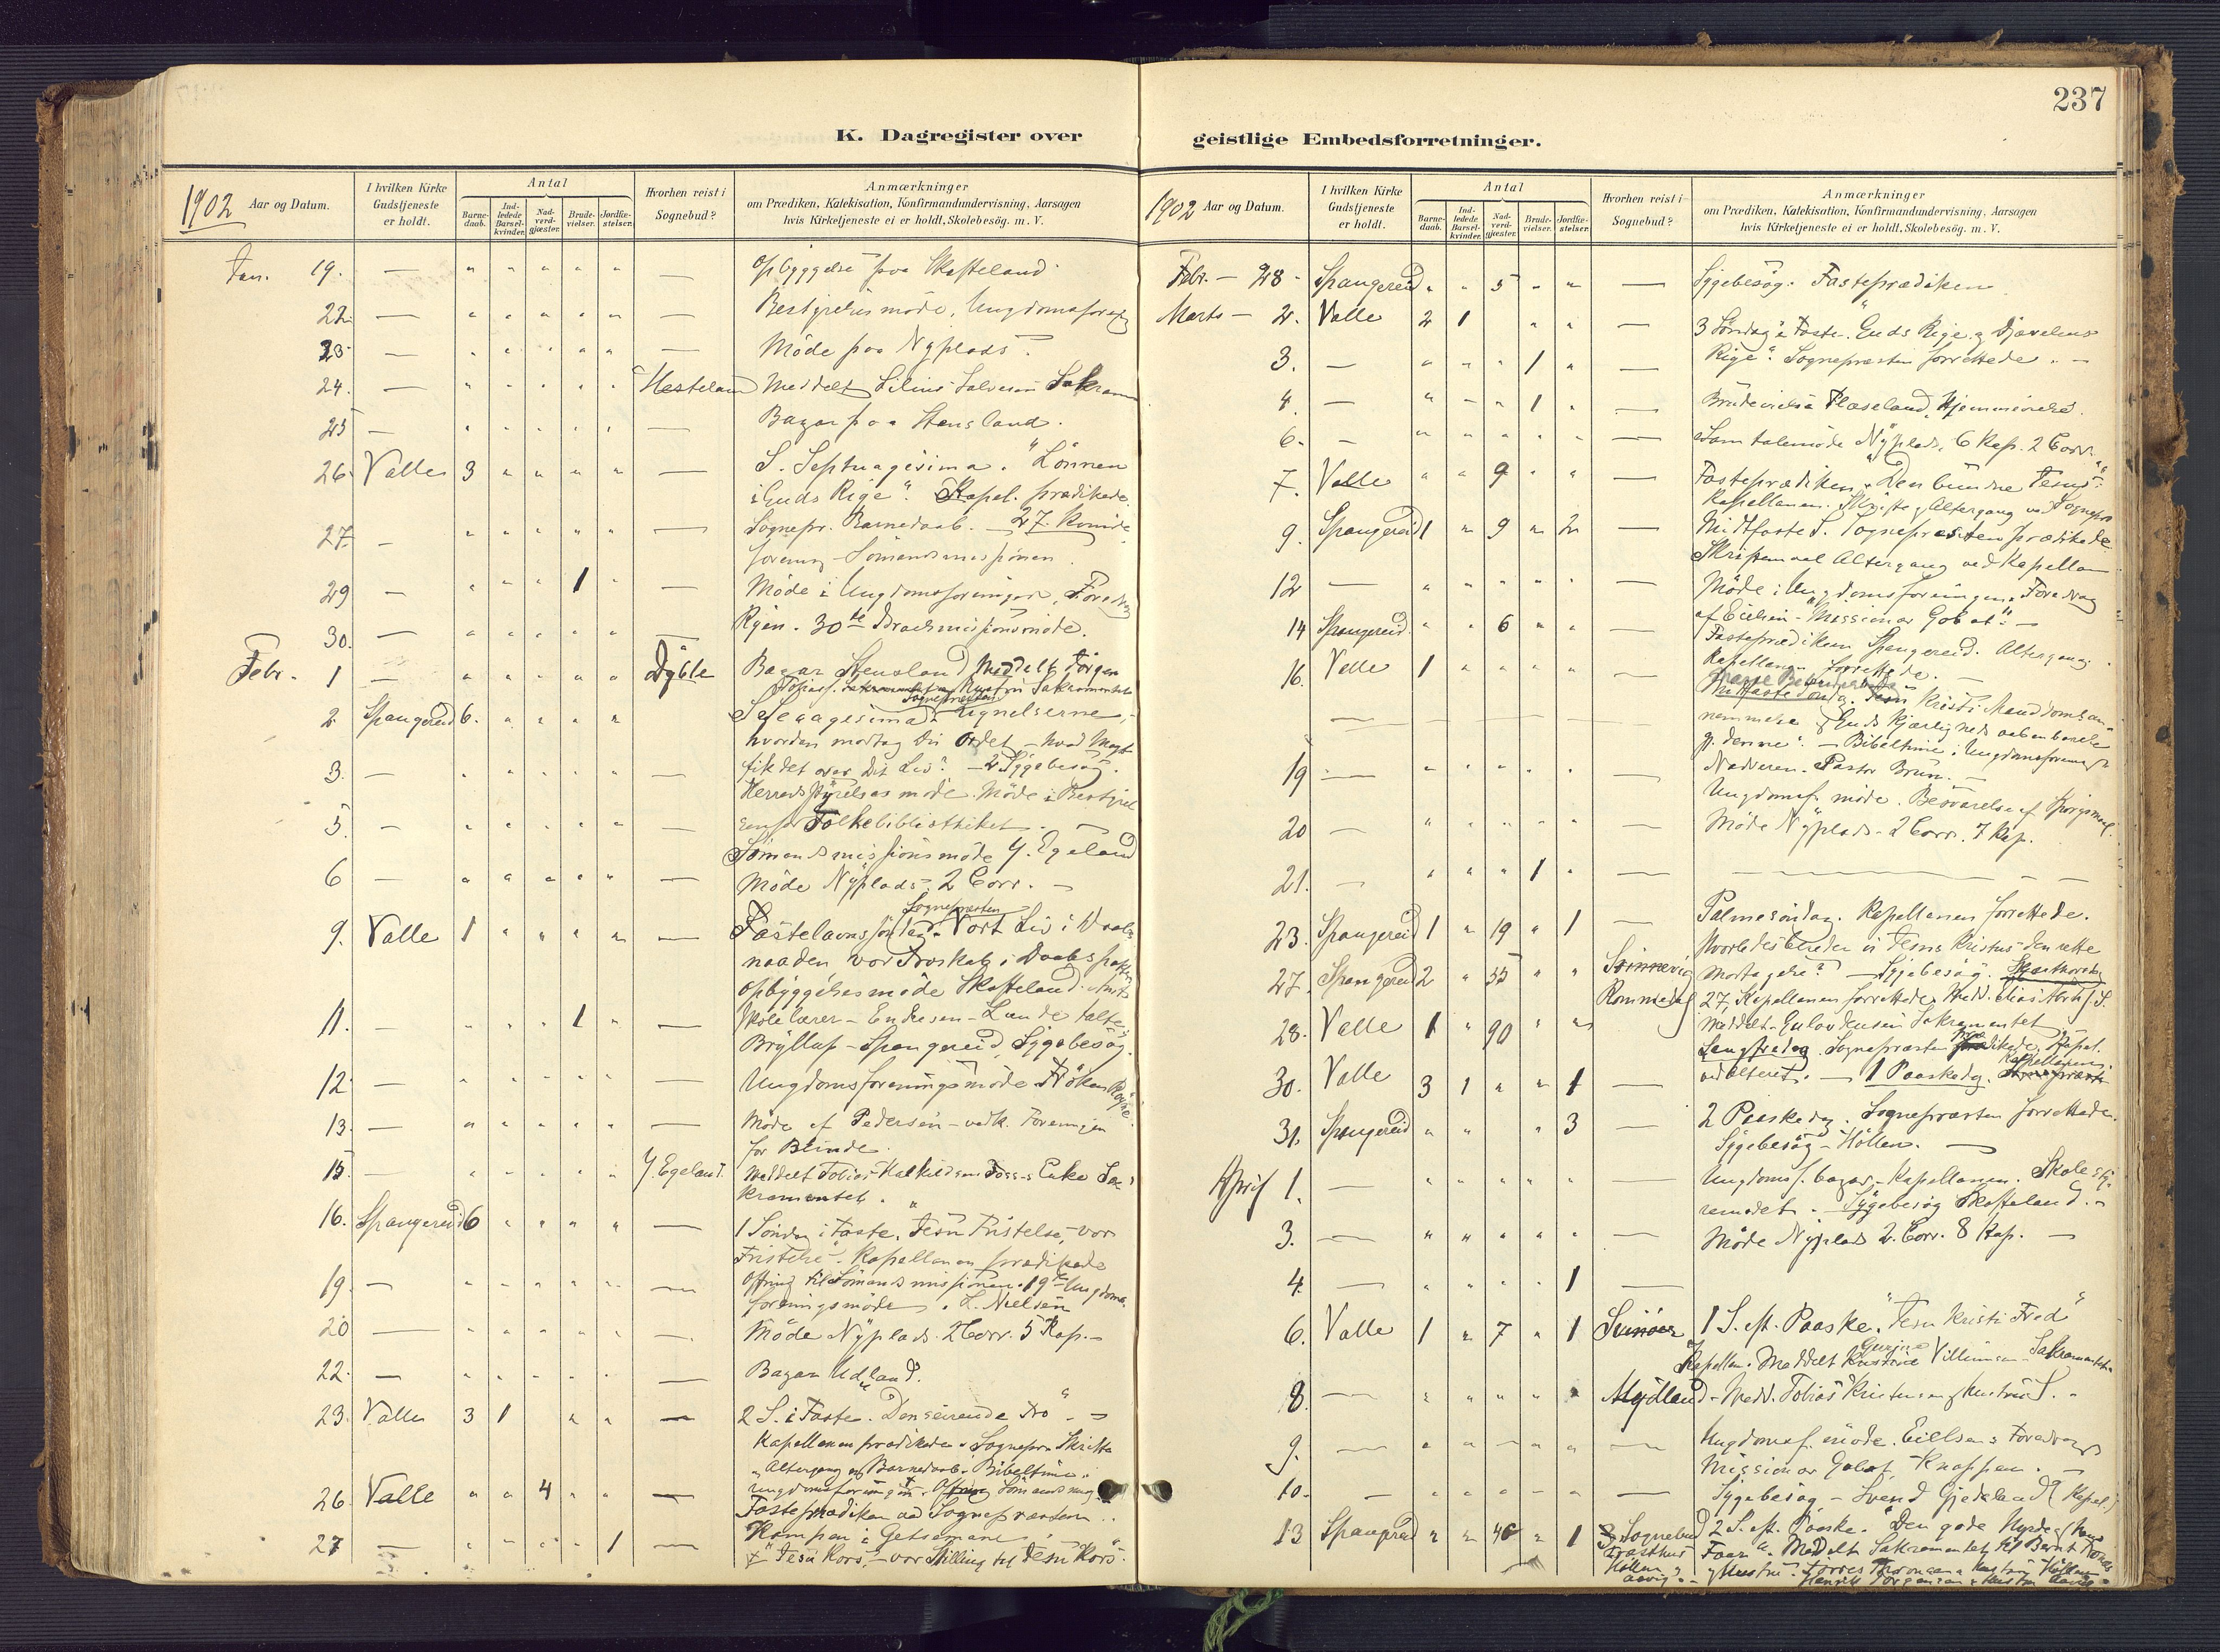 237
K. Dagregister over geistlige Embedsforretninger.
1902 Aar og Datum.
I hvilken Kirke Gudstjeneste er holdt.
Antal
Barne-daab. Ind-ledede Barsel-kvinder. Nad-verd-gjæster. Brude-vielser. Jordfæ-stelser.
Hvorhen reist i Sognebud?
Anmærkninger
om Prædiken, Katekisation, Konfirmandundervisning, Aarsagen
hvis Kirketjeneste ei er holdt, Skolebesög. m. V.
Jan. 19. — " " " " " — Opbyggelse paa Skofteland
22. — " " " " " — Bestyrelsesmöde, Ungdomsforen
23. — " " " " " — Möde paa Nyplads.
24. — " " " " " Hesteland Meddelt Salvesen Sakram
25 — " " " " " — Bazar paa Stensland.
26. Valle 3 " " " " — S. Septuagesima. "Lönnen
i Guds Rige". Kapel. prædikede
Sognepr. Barnedaab. — 27. Kvinde
27. — " " " " " — forening Sömandsmissionen.
29 — " " " 1 " — Möde i Ungdomsforeningen.
30. — " " " " " — 30te möde.
Febr. 1 — " " " " " Dyble Bazar Stensland Meddelt Jörgen
Tobias. Hustru Sakramentet
Sognepræsten
2. Spangereid 6. " " " " Sexagesima. Lignelserne,
hvordan modtog Du Ordet — hvad Magt
3. — " " " " " — fik det over Dit Liv? — 2 Sygebesög.
Herredsstyrelsesmöde. Möde i Bestyrel
5. — " " " " " — sen for Folkebibliotheket —
Sömandsmissionsmöde Y. Egeland
6 — " " " " " — Möde Nyplads. 2 Corr. —
Sognepræsten
9. Valle 1 " " " " — Fastelavnssöndag. Vort Liv i Daabs
naaden vor Troskab i Daabspakten
Opbyggelsesmöde Skofteland. Amts
11. — " " " 1 " — skolelærer — Endresen — Lande talte
Bryllup — Spangereid Sygebesög.
12. — " " " " " — Ungdomsforeningsmöde Fröken
13. — " " " " " — Möde af Pedersen — vedk. Foreningen
for Blinde.
15. — " " " " " Y. Egeland. Meddelt Tobias Enke Sa-
kramentet.
16. Spangereid 6 " " " " — 1 Söndag i Faste. Jesu Fristelse, vor
Fristelse". Kapellanen prædikede
19. — " " " " " — Ofring til Sömandsmissionen. 19de Ungdoms.
foreningsmöde. L. Nielsen
20 — " " " " " — Möde Nyplads. 2 Corr. 5 Kap. —
22. — " " " " " — Bazar Udland.
23. Valle 3 1 " " — 2 S. i Faste. Den seirende Tro" —
Kapellanen prædikede. Sognepr. Skrifte
Altergang og Barnedaab. Bibeltime
26. Valle " " 4 " " — Ungdomsforeningen. Ofring Sömandsmis
Fasteprædiken ved Sognepræsten.
27 — " " " " 1 — Kampen i Getsemane
"Jesu Kors, — vor Stilling til Jesu Kors".
1902 Aar og Datum.
I hvilken Kirke Gudstjeneste er holdt.
Antal
Barne-daab. Ind-ledede Barsel-kvinder. Nad-verd-gjæster. Brude-vielser. Jordfæ-stelser.
Hvorhen reist i Sognebud?
Anmærkninger
om Prædiken, Katekisation, Konfirmandundervisning, Aarsagen
hvis Kirketjeneste ei er holdt, Skolebesög. m. V.
Febr. — 28 — Spangereid " " 5 " " — Sygebesög. Fasteprædiken
Marts — 2. Valle 2 1 " " — 3 Söndag i Faste. Guds Rige og Djævelens
3. — " " " 1 " — Rige". Sognepræsten forrettede. —
4. — " " " 1 " — Brudevielse Hjemmevielse.
6. — " " " " " — Samtalemöde Nyplads. 6 Kap. 2 Corr.
7. Valle " " 9 " " — Fasteprædiken. "Den bundne Jesus".
Kapellanen. Skrifte, Altergang ved Sognepr
9. Spangereid 1 " 9 " 2 — Midtfaste S. Sognepræsten prædikede
Skriftemaal Altergang ved Kapellan
12 — " " " " " — Möde i Ungdomsforeningen. Foredrag
14 Spangereid. " " 6 " " — af Eielsen "Missionær Gobat". —
Fasteprædiken Spangereid. Altergang.
16. Valle 1 " " " " — Kapellanen forrettede. —
Jesu Kristi Manddomsan-
nemmelse og Guds Kjærligheds aabenbarelse
gj. denne". — Bibeltime i Ungdomsforeningen
19 — " " " " " — Nadveren. Pastor Brun. —
Ungdomsf. möde. Besvarelse af Spörgsmaal.
20 — " " " " " — Möde Nyplads — 2 Corr. 7 Kap.
21. — " " " 1 " —
23. Spangereid 1 " 19 " 1 — Palmesöndag. Kapellanen forrettede.
Hvorledes bereder vi Jesus Kristus den rette
27. Spangereid 2 " 35 " " Svinnevig Modtagelse? — Sygebesög. Skjærthorsdag
Rommedal 27. Kapellanen forrettede. Medd. S.
28. Valle 1 " 90 " " Meddelt Sakramentet
Langfredag. Sognepræsten prædikede. Kapel.
Kapellanen.
30. Valle 3 1 " " 1 — ved Alteret. — 1 Paaskedag.
31. Spangereid " " " 3 — 2 Paaskedag. Sognepræsten forrettede.
Sygebesög — Höllen. —
April 1. — " " " " " — Ungdomsf. bazar, — Kapellanen. Skolesty-
remödet. — Sygebesög Skofteland. —
3. — " " " " " — Möde Nyplads 2. Corr. 8 Kap. —
4. — " " " " 1 —
6. Valle 1 " 7 " 1 Svinöer 1 S. eft. Paaske. "Jesu Kristi Fred"
Kapellan. Meddelt Villumsen Sakramentet.
8. — " " " " " Mydland — Medd. Tobias Kristensen og Hustru S.
9. — " " " " " — Ungdomsf. möde. Eielsens Foredrag
Missionær Gobat. Knappen. —
10. — " " " " " — Sygebesög — Svend Gjedeland (Kapel.)
13 Spangereid " " 40 " 1 3 Sognebud 2 S. eft. Paaske. "Den gode Hyrde og hans
Faar". Meddelt Sakramentet til Bernt
Höllen
Aavig. — og Hustru. Torres Hustru Höllen
Henrik Jörgensen og Hustru Aavig.